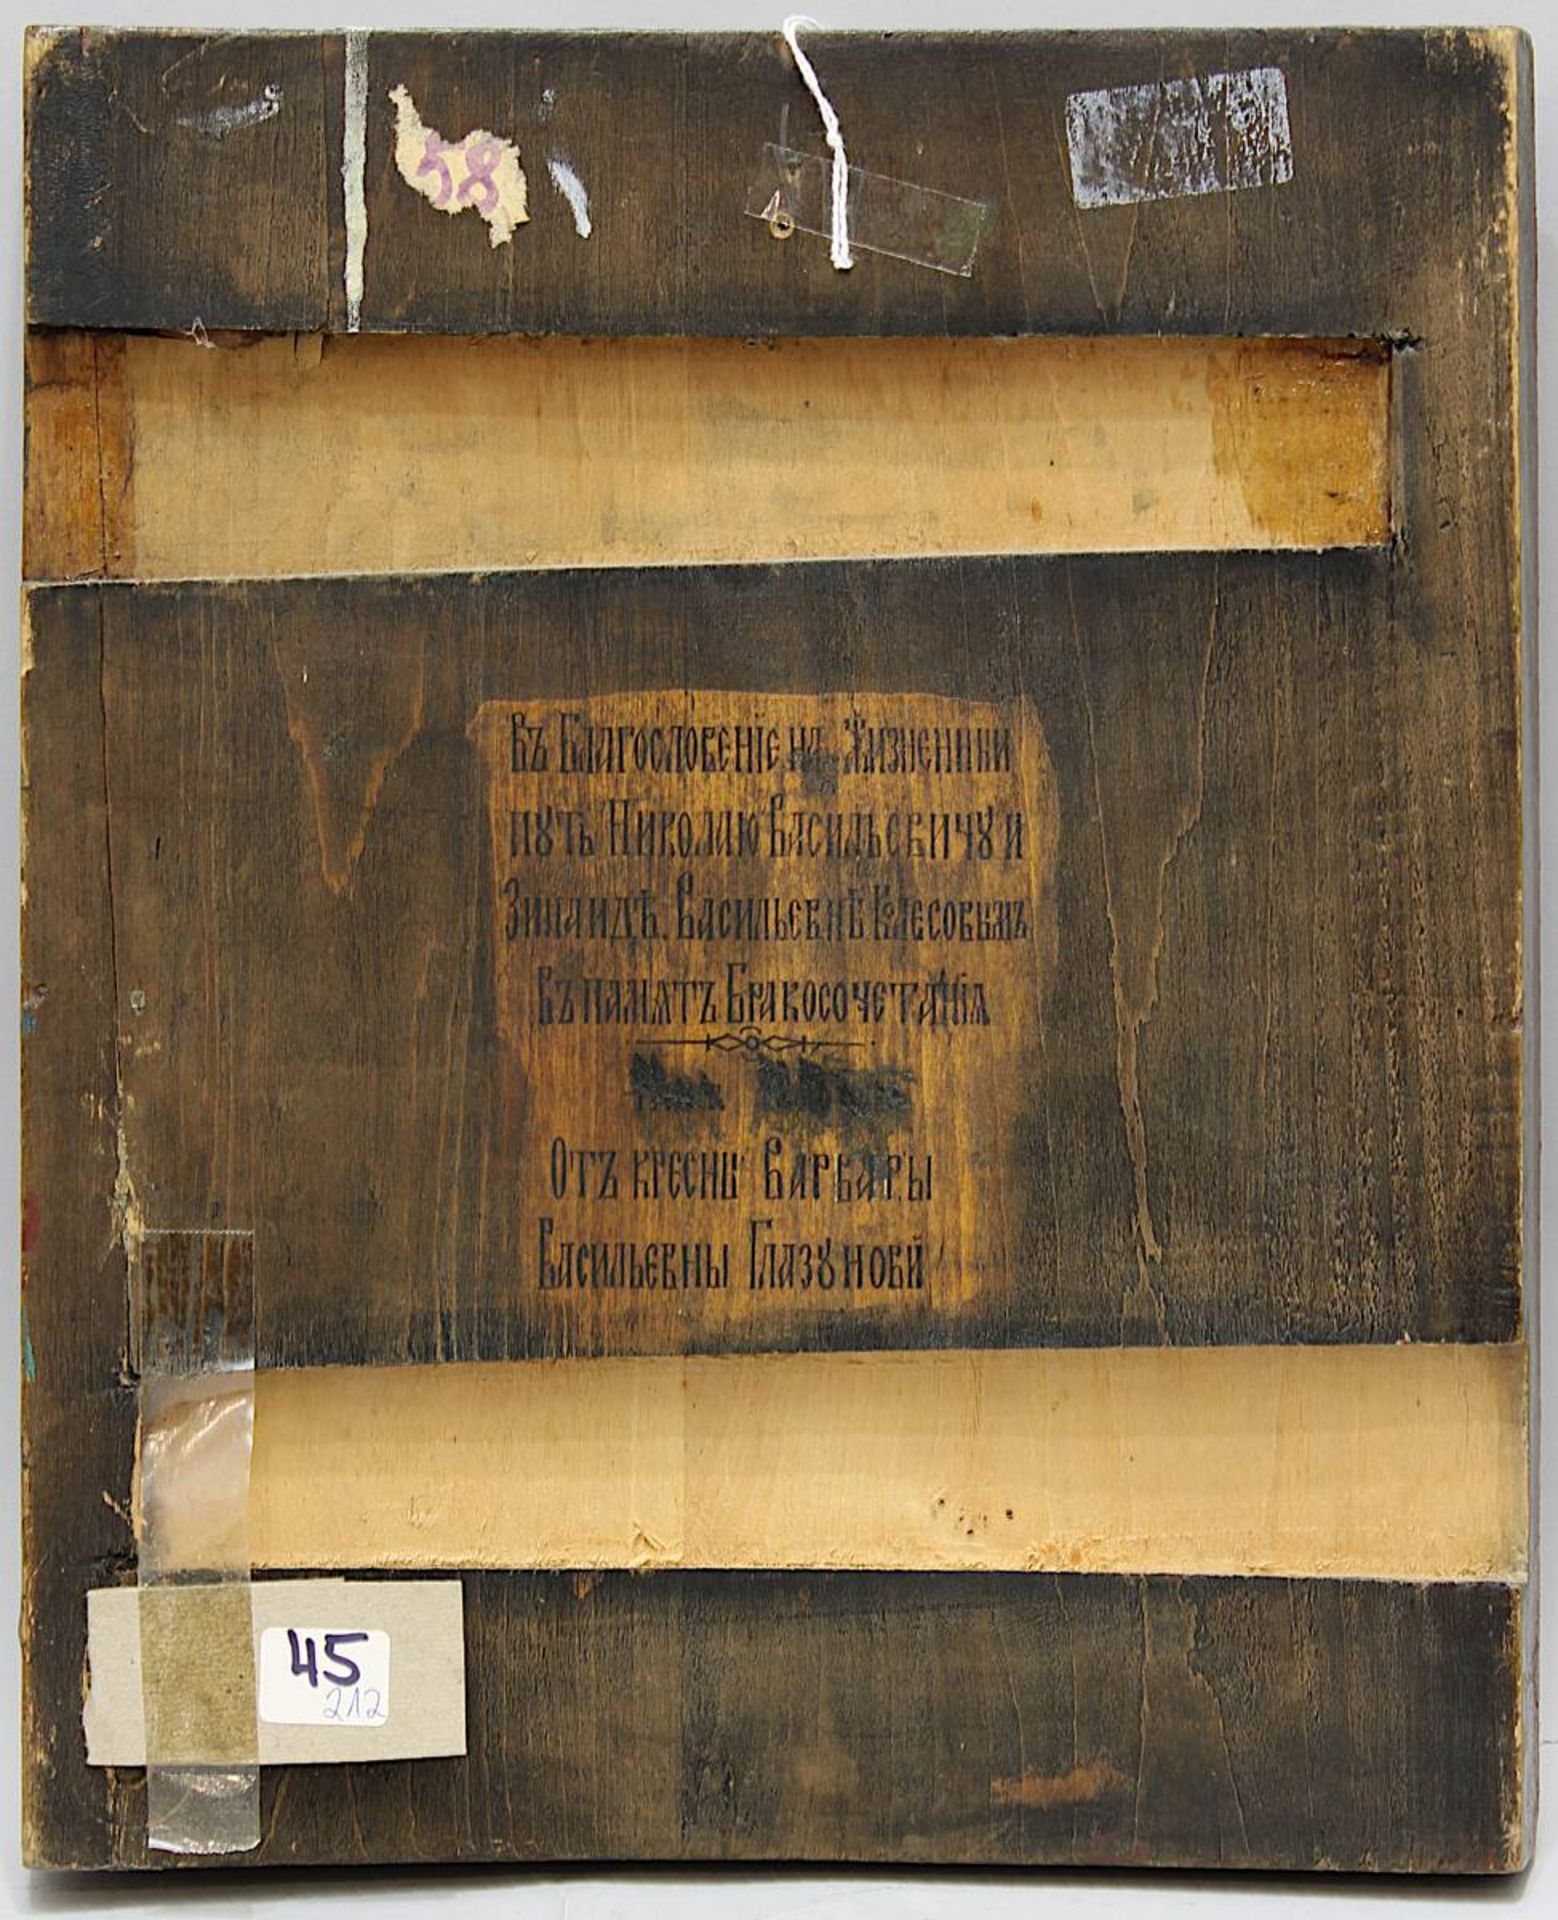 58
Въ Благословенiе на Жизненики
путь Николаю Васильевичу и
Зинаидѣ Васильевнѣ Колесовымъ
въ памятъ Бракосочетанiя
Отъ кресны Варвары
Васильевны Глазуновй
45
212